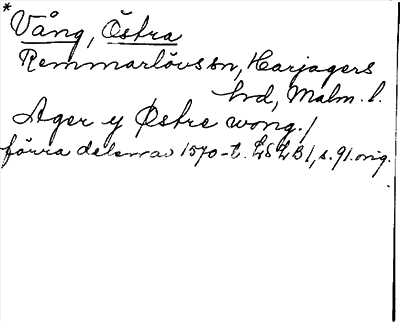 * Vång, Östra
Remmarlövs sn, Harjagers
hd, Malm. l.
Ager y Østre wong. /
förra delen av 1570-t. LSLB 1, s. 91. orig.